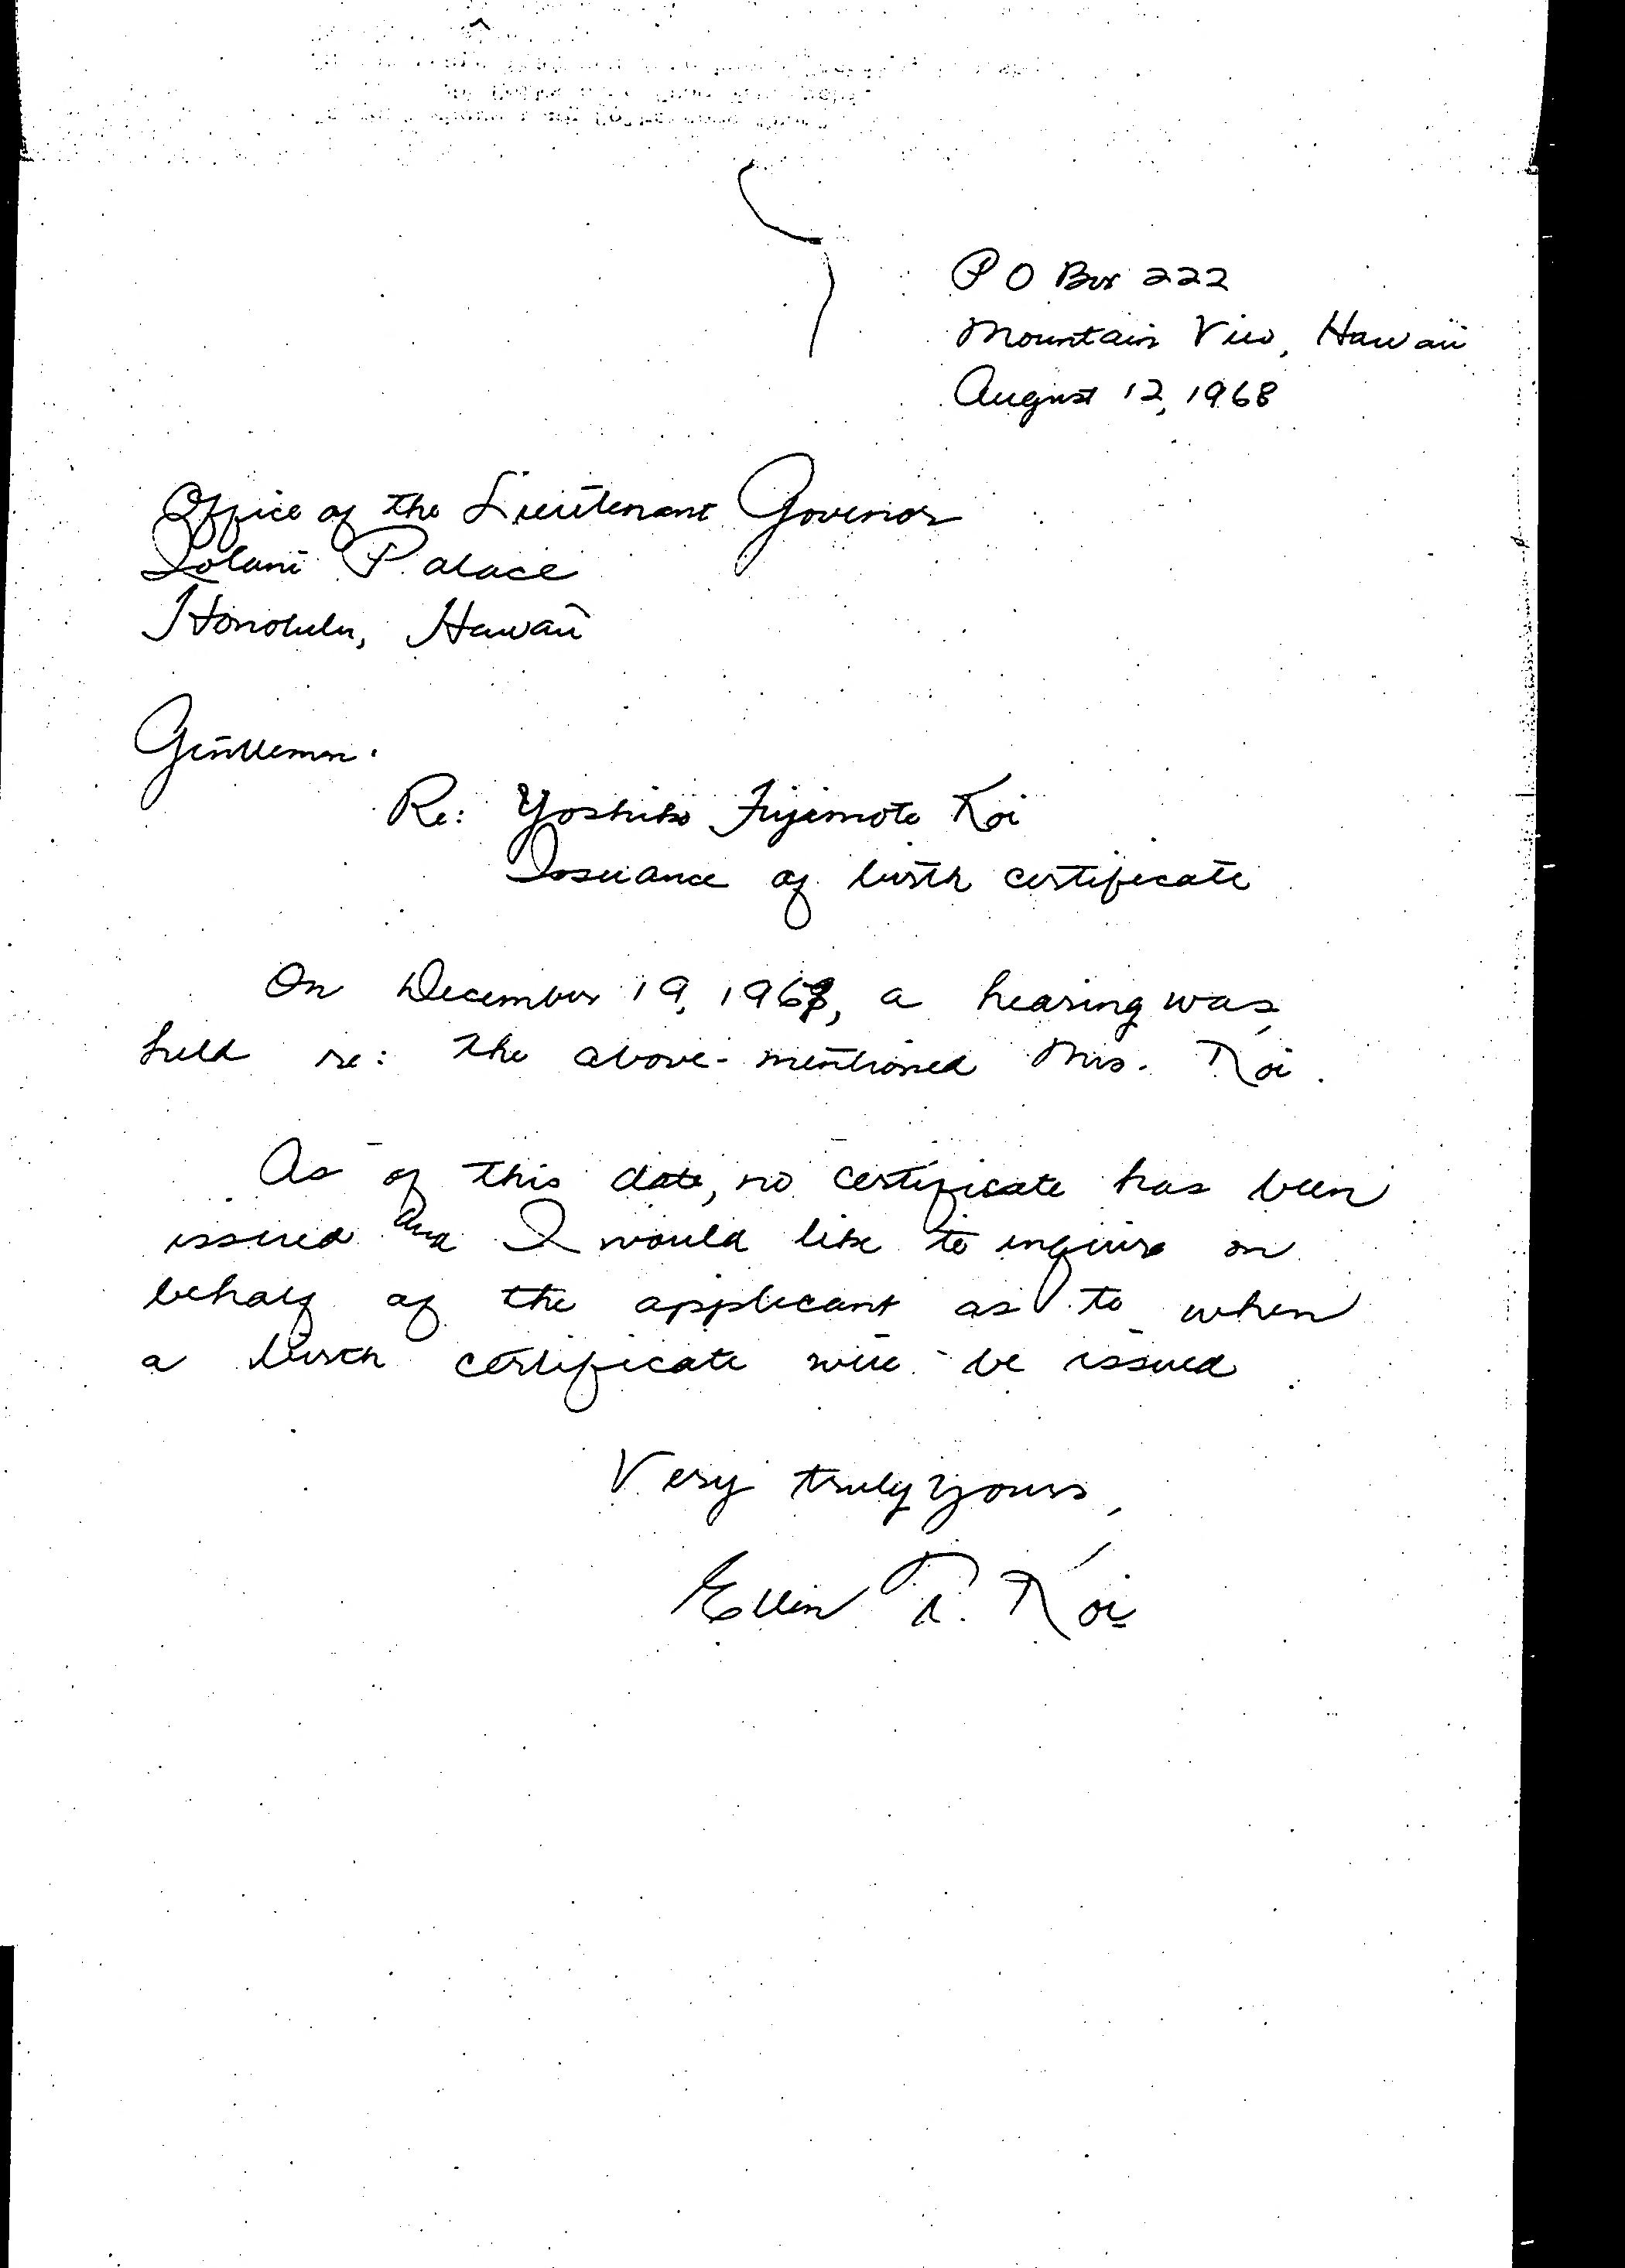 P O Box 222
Mountain View, Hawaii
August 12, 1968
Office of the Lieutenant Govenor
Iolani Palace
Honolulu, Hawaii
Gentlemen:
Re: Yoshiko Fujimoto Koi
Issuance of birth certificate
On December 19, a hearing was
held re: the above-mentioned Mrs. Koi.
As of this date, no certificate has been
issued and I would like to inquire on
behalf of the applicant as to when
a birth certificate will be issued.
Very truly yours,
Ellen T. Koi